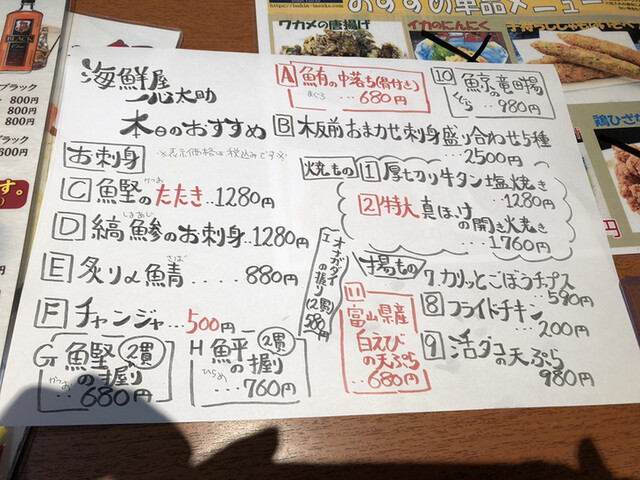 おすすめ単品メニュー
ワカメの唐揚げ
イカのにんにく
BLACK
ブラック
800円
800円
800円
ブラック
600円
海鮮屋
一心太助
本日のおすすめ
※表示価格は税込みです※
お刺身
C 鰹のたたき・1280円
かつお
D 縞鰺のお刺身・1280円
しまあじ
E 炙り〆鯖 ‥‥ 880円
さば
F チャンジャ…500円
G 鰹の握り 2貫
かつお
‥‥680円
H 鮃の握り 2貫
ひらめ
‥‥760円
I オナガダイの握り(2貫) 580円
A 鮪の中落ち(骨付き)
まぐろ
‥‥680円
10 鯨の竜田揚
くじら
‥‥980円
B 板前おまかせ刺身盛り合わせ5種
‥‥2500円
焼もの
1 厚切り牛タン塩焼き
‥‥1280円
2 特大真ほっけの開き焼き
‥‥1,760円
揚もの
7 カリッとごぼうチップス
‥‥590円
8 フライドチキン
‥‥200円
9 活ダコの天ぷら
980円
11 富山県産
白えび
の天ぷら
‥680円
鶏ひざ